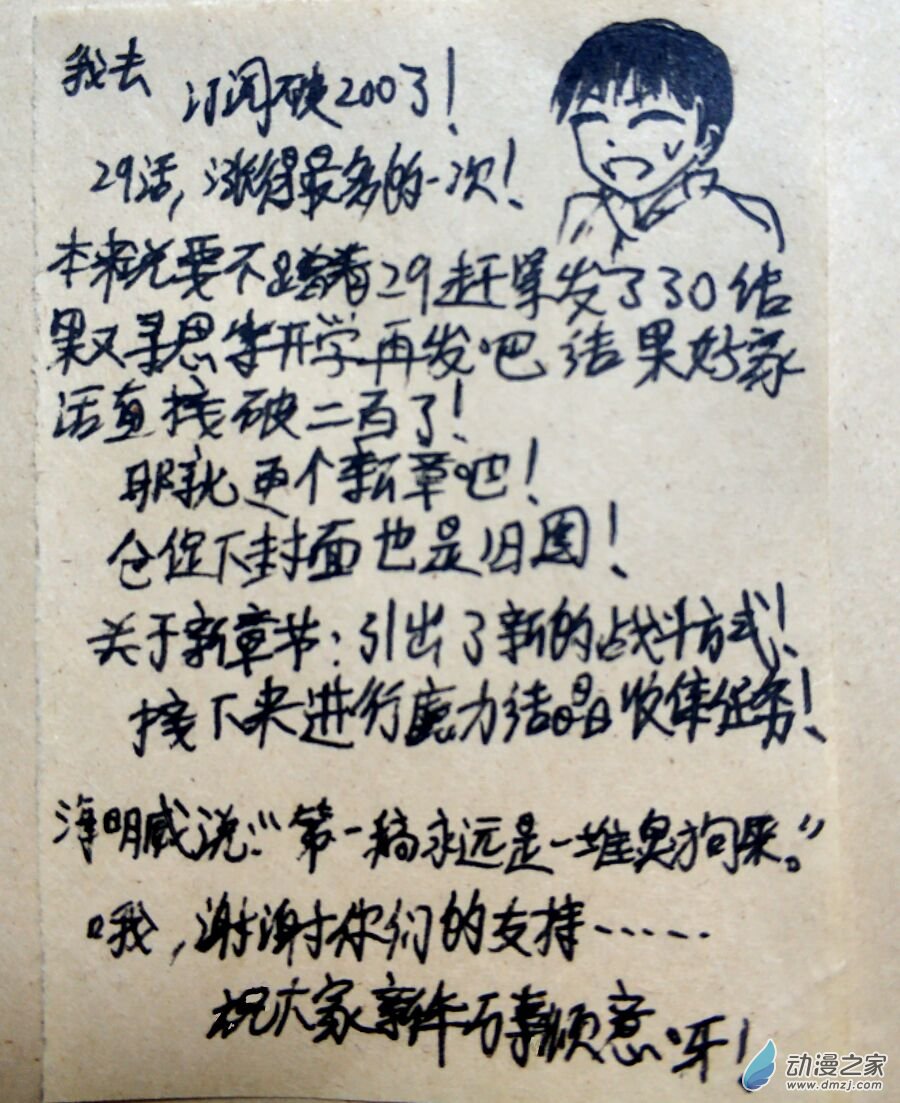 我去
订阅破200了!
29话,涨得最多的一次!
本来说要不蹭着29赶紧发了30结
果又寻思等开学再发吧结果好家
活直接破二百了!
那就更个新章吧!
仓促下封面也是旧图!
关于新章节:引出了新的战斗方式!
接下来进行魔力结晶收集任务!
海明威说:“第一稿永远是一堆臭狗屎。”
哦,谢谢你们的支持······
祝大家新年万事顺意呀!
动漫之家
www.dmzj.com